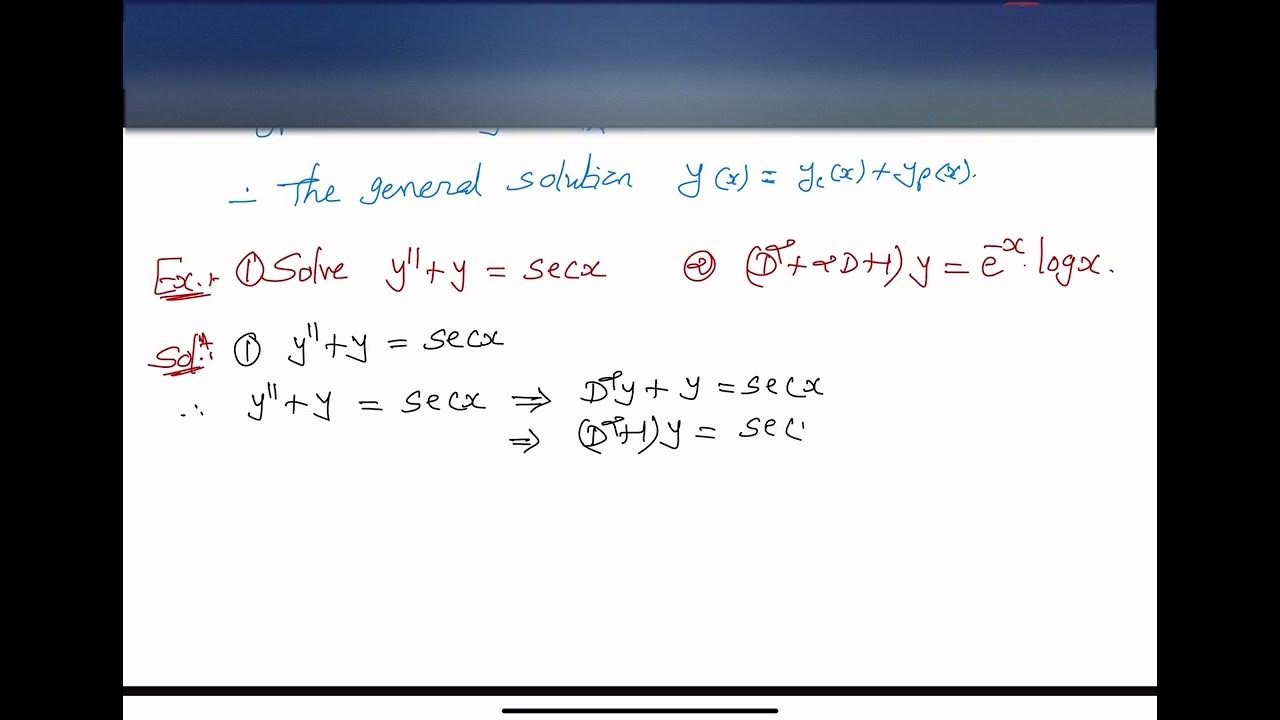 ∴ The general solution y(x) = y_c(x) + y_p(x).
Ex:- ① Solve y'' + y = secx ② (D²+2D+1) y = e^-x. logx.
Sol^n: ① y'' + y = secx
∴ y'' + y = secx ⇒ D²y + y = secx
⇒ (D²+1) y = sec